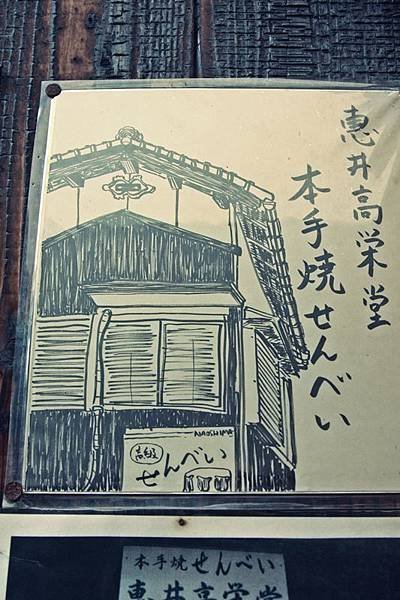 恵井高栄堂
本手焼せんべい
NAOSHIMA
高級
せんべい
本手焼せんべい
恵井高栄堂